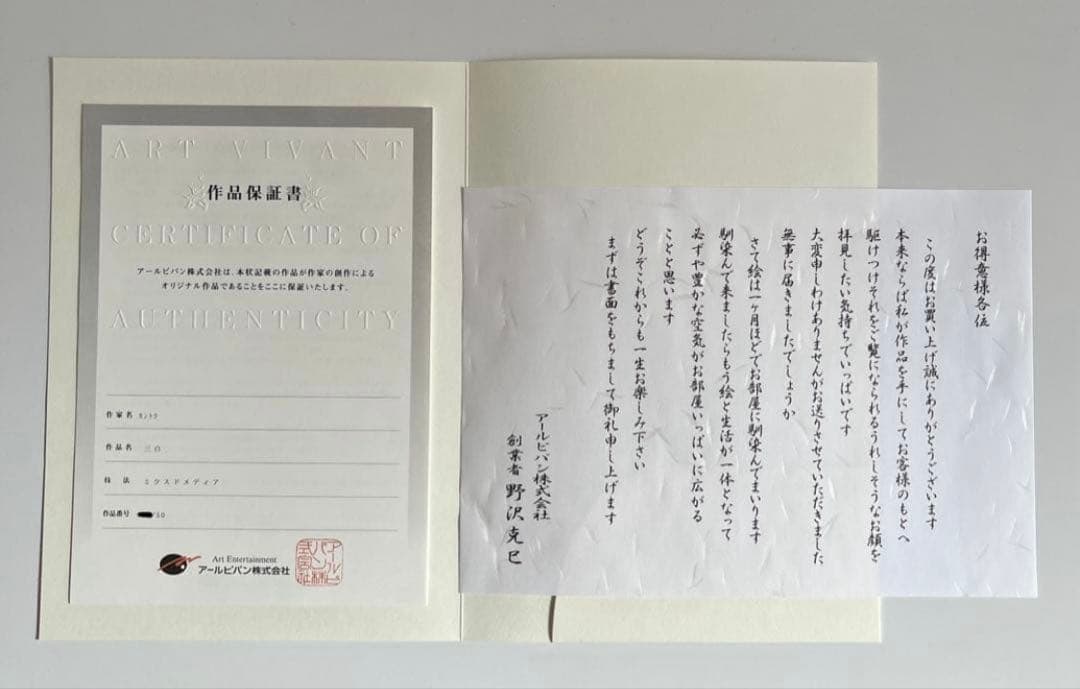 ART VIVANT
作品保証書
CERTIFICATE OF
アールビバン株式会社は、本状記載の作品が作家の創作による
オリジナル作品であることをここに保証いたします。
AUTHENTICITY
作家名 カントク
作品名 三白
技法 ミクスドメディア
作品番号 /50
Art Entertainment
アールビバン株式会社
お得意様各位
この度はお買い上げ誠にありがとうございます
本来ならば私が作品を手にしてお客様のもとへ
駆けつけそれをご覧になられるうれしそうなお顔を
拝見したい気持ちでいっぱいです
大変申しわけありませんがお送りさせていただきました
無事に届きましたでしょうか
さて絵は一ヶ月ほどでお部屋に馴染んでまいります
馴染んで来ましたらもう絵と生活が一体となって
必ずや豊かな空気がお部屋いっぱいに広がる
ことと思います
どうぞこれからも一生お楽しみ下さい
まずは書面をもちまして御礼申し上げます
アールビバン株式会社
創業者 野沢克巳